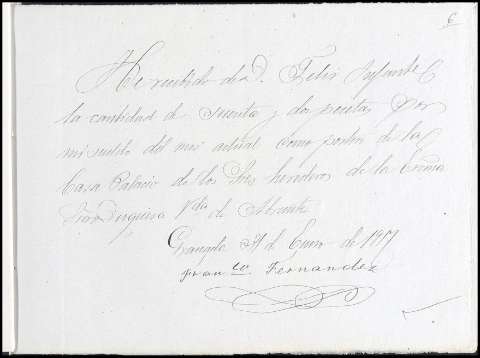 6
He recibido de D. Felix Infante
la cantidad de sesenta y dos pesetas por
mi sueldo del mes actual como portero de la
Casa Palacio de los Sres herederos de la Exma
Sra Duquesa Vda de Abrantes
Granada 31 de Enero de 1907
Franco Fernandez